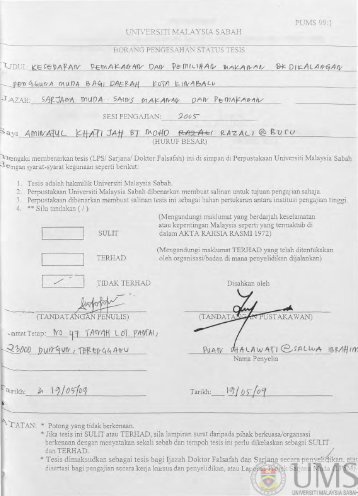 PUMS 99:1
UNIVERSITI MALAYSIA SABAH
BORANG PENGESAHAN STATUS TESIS
JUDUL: KESEDARAN PEMAKANAN DAN PEMILIHAN MAKANAN DIKALANGAN
PENGGUNA MUDA BAGI DAERAH KOTA KINABALU
IJAZAH: SARJANA MUDA SAINS MAKANAN DAN PEMAKANAN
SESI PENGAJIAN: 2005
Saya AMINATUL KHATIJAH BT MOHD RAZALI @ BURU
(HURUF BESAR)
mengaku membenarkan tesis (LPS/ Sarjana/ Doktor Falsafah) ini di simpan di Perpustakaan Universiti Malaysia Sabah
dengan syarat-syarat kegunaan seperti berikut:
1. Tesis adalah hakmilik Universiti Malaysia Sabah.
2. Perpustakaan Universiti Malaysia Sabah dibenarkan membuat salinan untuk tujuan pengajian sahaja.
3. Perpustakaan dibenarkan membuat salinan tesis ini sebagai bahan pertukaran antara institusi pengajian tinggi.
4. ** Sila tandakan ( / )
SULIT
(Mengandungi maklumat yang berdarjah keselamatan
atau kepentingan Malaysia seperti yang termaktub di
dalam AKTA RAHSIA RASMI 1972)
TERHAD
(Mengandungi maklumat TERHAD yang telah ditentukakan
oleh organisasi/badan di mana penyelidikan dijalankan)
/ TIDAK TERHAD
Disahkan oleh
(TANDATANGAN PENULIS)
(TANDATANGAN PUSTAKAWAN)
Alamat Tetap: NO 47 TAMAN LOT PANTAI,
23000 DUNGUN, TERENGGANU
PUAN MALAWATI @ SALWA IBRAHIM
Nama Penyelia
Tarikh: 19/05/09
Tarikh: 19/05/09
CATATAN: * Potong yang tidak berkenaan.
* Jika tesis ini SULIT atau TERHAD, sila lampiran surat daripada pihak berkuasa/organsasi
berkenaan dengan menyatakan sekali sebab dan tempoh tesis ini perlu dikelaskan sebagai SULIT
dan TERHAD.
* Tesis dimaksudkan sebagai tesis bagi Ijazah Doktor Falsafah dan Sarjana secara penyelidikan, atau
disertasi bagi pengajian secara kerja kursus dan penyelidikan, atau
UMS
UNIVERSITI MALAYSIA SABAH